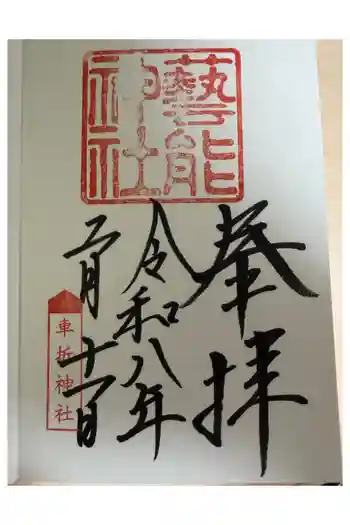 藝能
神社
奉拝
令和八年
二月十一日
車折神社